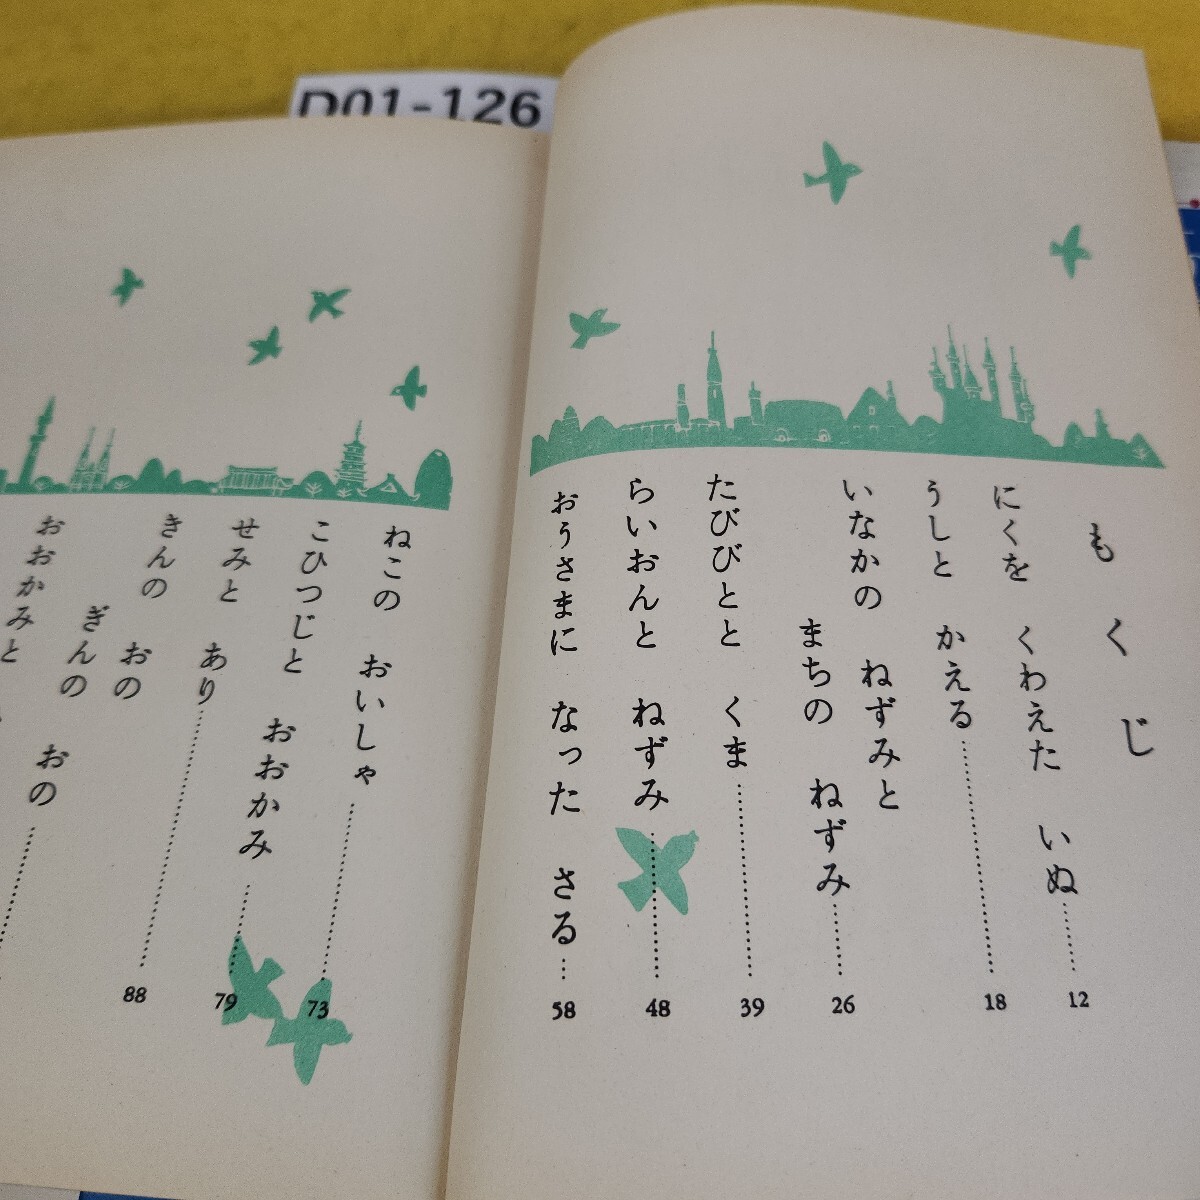 D01-126
もくじ
にくを くわえた いぬ……12
うしと かえる……18
いなかの ねずみと
まちの ねずみ……26
たびびとと くま……39
らいおんと ねずみ……48
おうさまに なった さる…58
ねこの おいしゃ……73
こひつじと おおかみ……79
せみと あり……88
きんの おの
ぎんの おの……
おおかみと